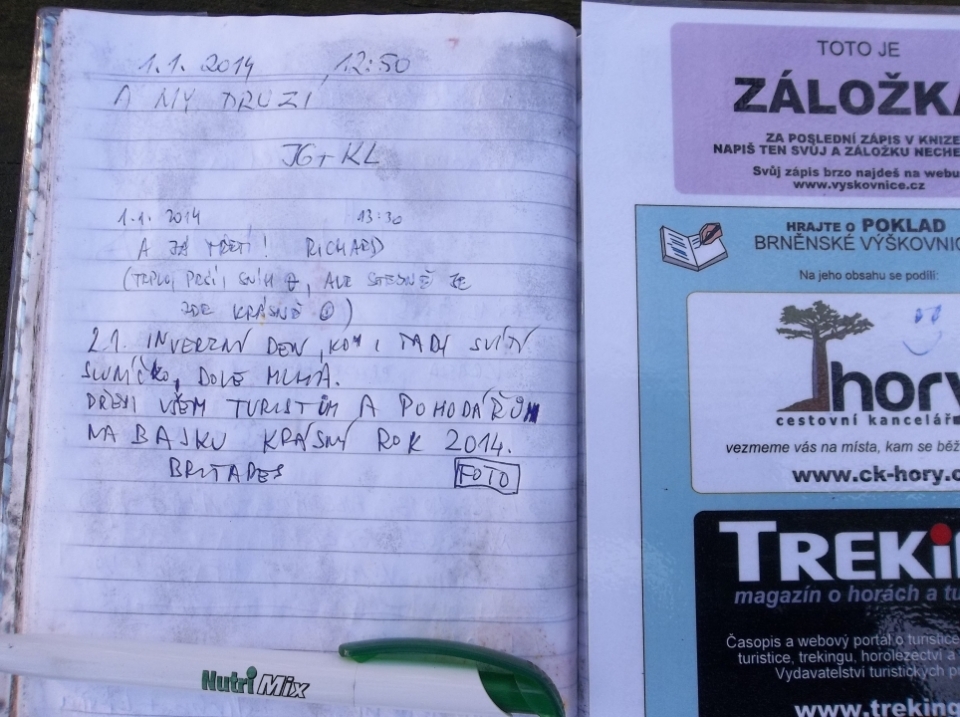 1.1. 2014 12:50
A MY DRUZÍ
JG + KL
1.1. 2014 13:30
A JÁ TŘETÍ! RICHARD
(TEPLO, PRŠÍ, SNÍH 0, ALE STEJNĚ JE
ZDE KRÁSNĚ ☺)
2.1. INVERZNÍ DEN, KDY I TADY SVÍTÍ
SLUNÍČKO, DOLE MLHA.
PŘEJI VŠEM TURISTŮM A POHODÁŘŮM
NA BAJKU KRÁSNÝ ROK 2014.
BRITAPES FOTO
Nutri Mix
TOTO JE
ZÁLOŽKA
ZA POSLEDNÍ ZÁPIS V KNIZE
NAPIŠ TEN SVŮJ A ZÁLOŽKU NECHE
Svůj zápis brzo najdeš na webu
www.vyskovnice.cz
HRAJTE O POKLAD
BRNĚNSKÉ VÝŠKOVNIC
Na jeho obsahu se podílí:
hory
cestovní kancelář
vezmeme vás na místa, kam se běž
www.ck-hory.c
TREKiN
magazín o horách a tu
Časopis a webový portál o turistice
turistice, trekingu, horolezectví a
Vydavatelství turistických p
www.treking